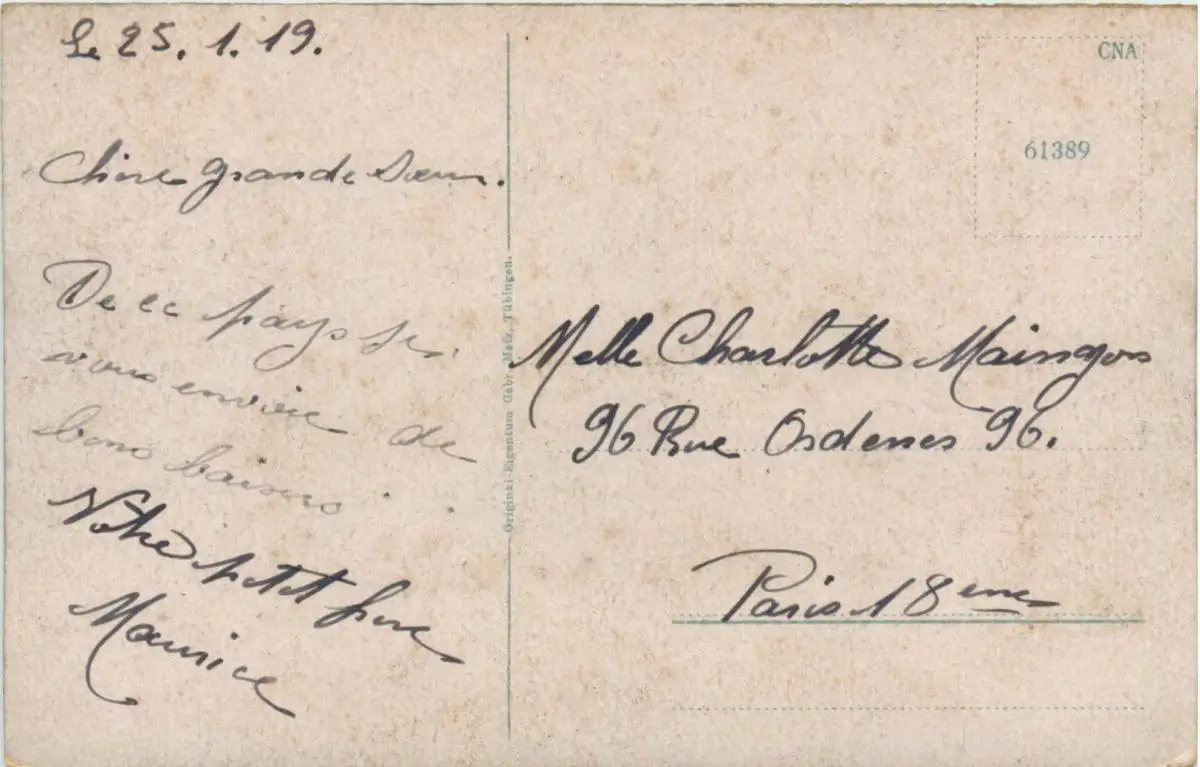 Le 25.1.19.
Chère grande Sœur.
De ce pays je
vous envoie de
bons baisers.
Votre petit frère
Maurice
Original-Eigentum Gebr. Metz, Tübingen.
CNA
61389
Melle Charlotte
96 Rue Ordener 96.
Paris 18eme